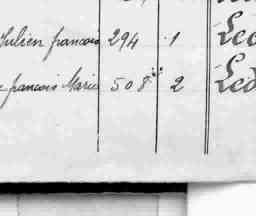 Julien francois 294 1 Led
francois Marie 508 2 Led